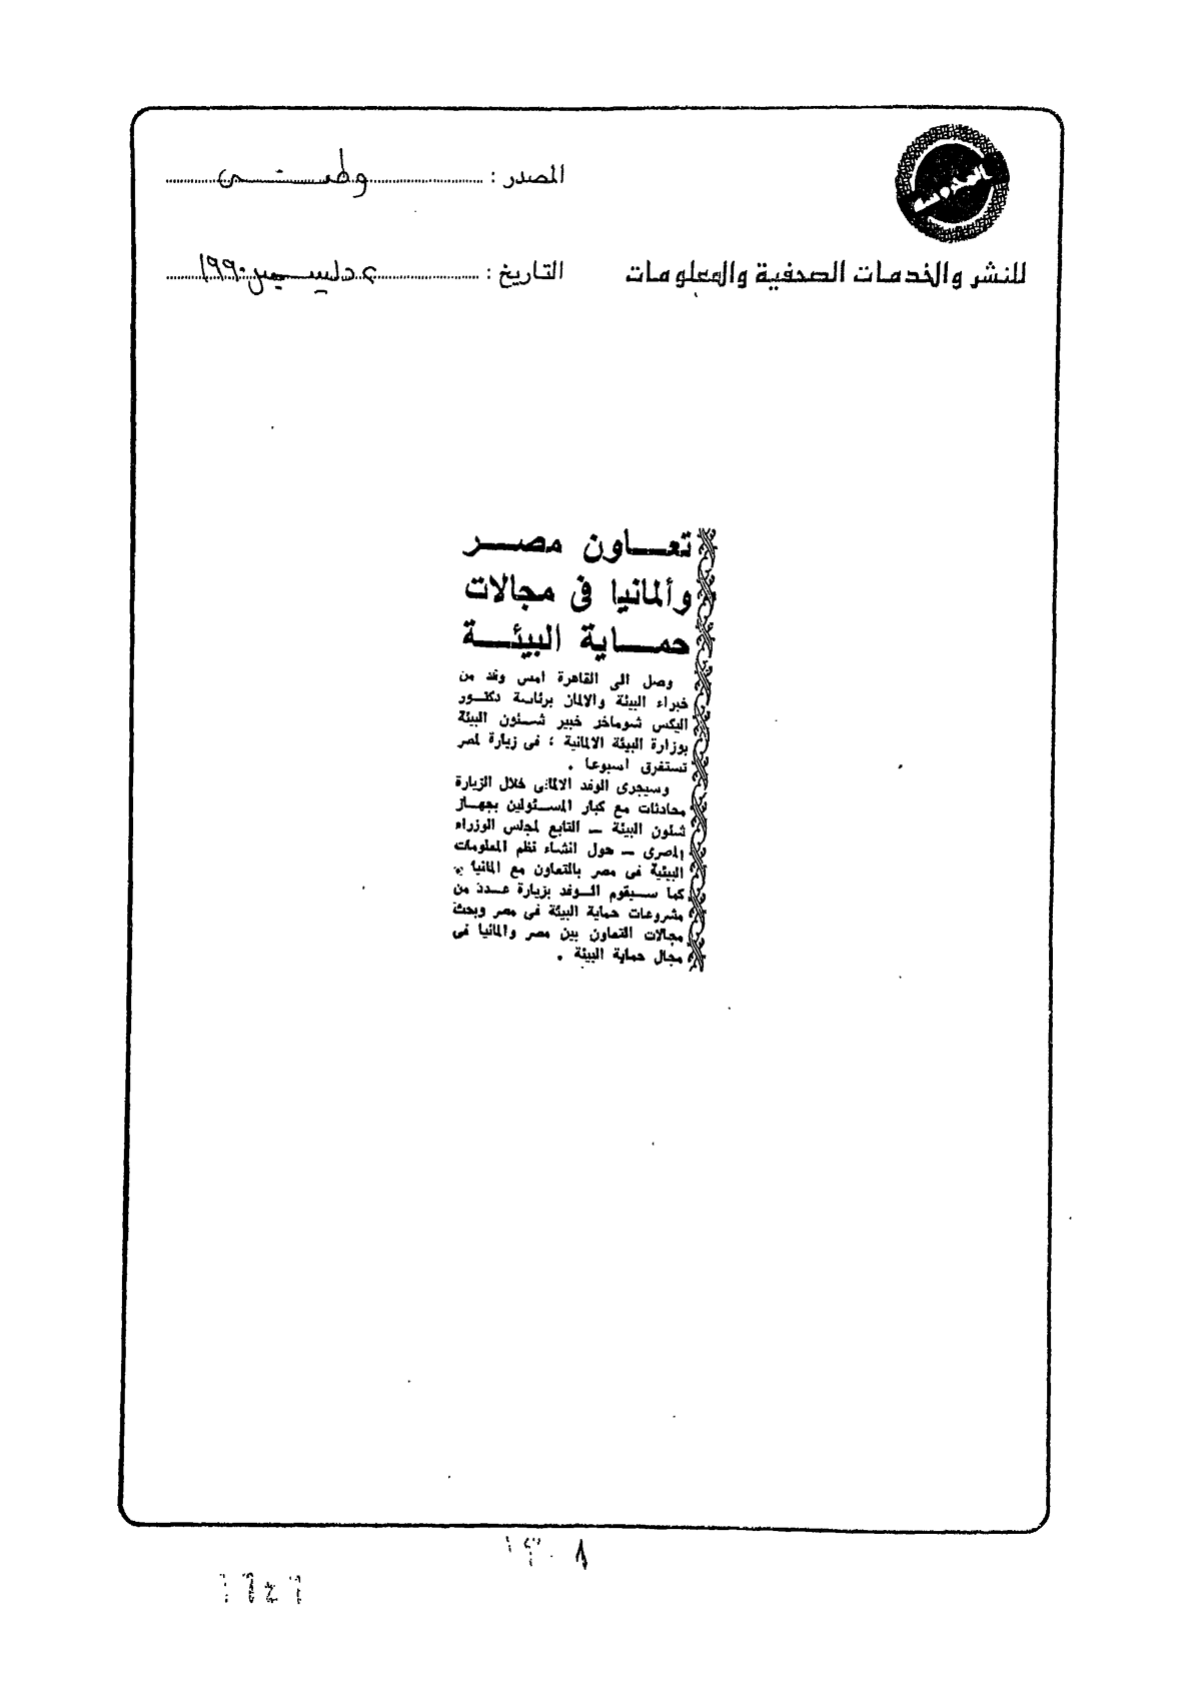 المصدر : وطنى
التاريخ : ٢ ديسمبر ١٩٩٠
للنشر والخدمات الصحفية والمعلومات
تعاون مصر
وألمانيا فى مجالات
حماية البيئة
وصل الى القاهرة امس وفد من
خبراء البيئة والالمان برئاسة دكتور
اليكس شوماخر خبير شئون البيئة
بوزارة البيئة الالمانية ؛ فى زيارة لمصر
تستغرق اسبوعا .
وسيجرى الوفد الالمانى خلال الزيارة
محادثات مع كبار المسئولين بجهاز
شئون البيئة ــ التابع لمجلس الوزراء
المصرى ــ حول انشاء نظم المعلومات
البيئية فى مصر بالتعاون مع المانيا .
كما سيقوم الوفد بزيارة عدد من
مشروعات حماية البيئة فى مصر وبحث
مجالات التعاون بين مصر والمانيا فى
مجال حماية البيئة .